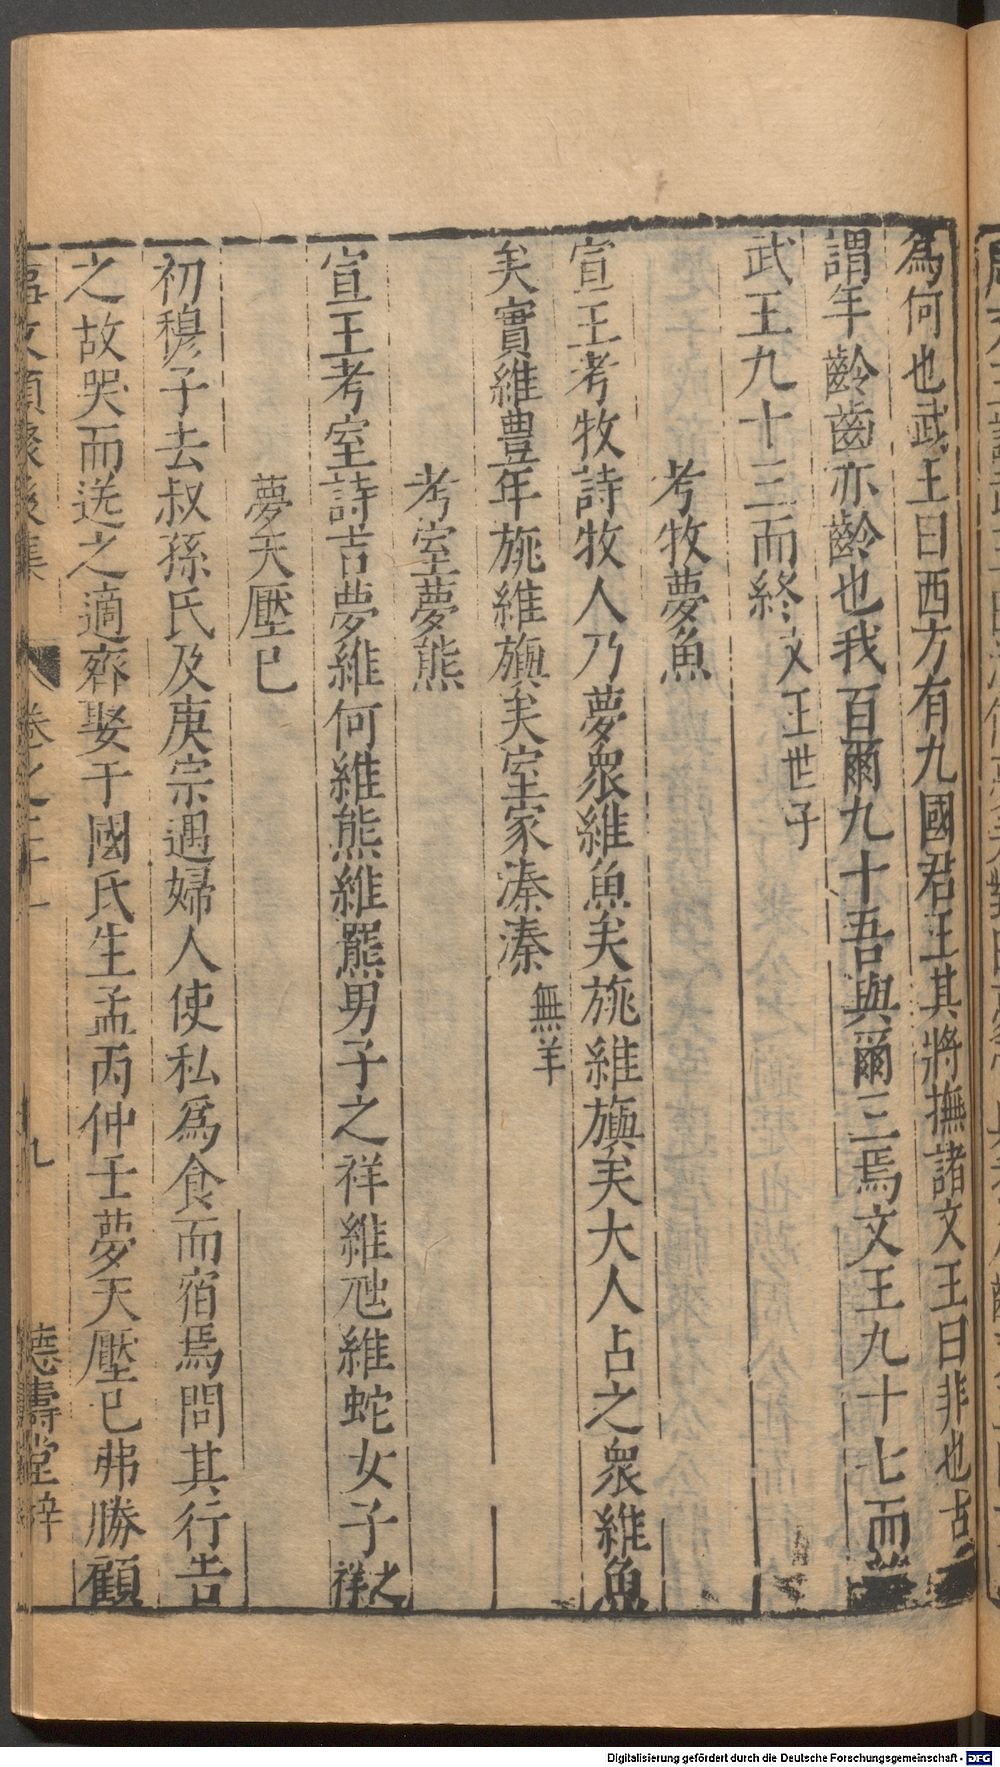 為何也武王曰西方有九國君王其將撫諸文王曰非也古
謂年齡齒亦齡也我百爾九十吾與爾三焉文王九十七而
武王九十三而終文王世子
考牧夢魚
宣王考牧詩牧人乃夢衆維魚矣旐維旟矣大人占之衆維魚
矣實維豊年旐維旟矣室家溱溱無羊
考室夢熊
宣王考室詩吉夢維何維熊維羆男子之祥維虺維蛇女子之祥
夢天壓已
初穆子去叔孫氏及庚宗遇婦人使私為食而宿焉問其行告
之故哭而送之適齊娶于國氏生孟丙仲壬夢天壓已弗勝顧
事文類聚後集 卷之二十一 九 德壽堂梓
Digitalisierung gefördert durch die Deutsche Forschungsgemeinschaft - DFG